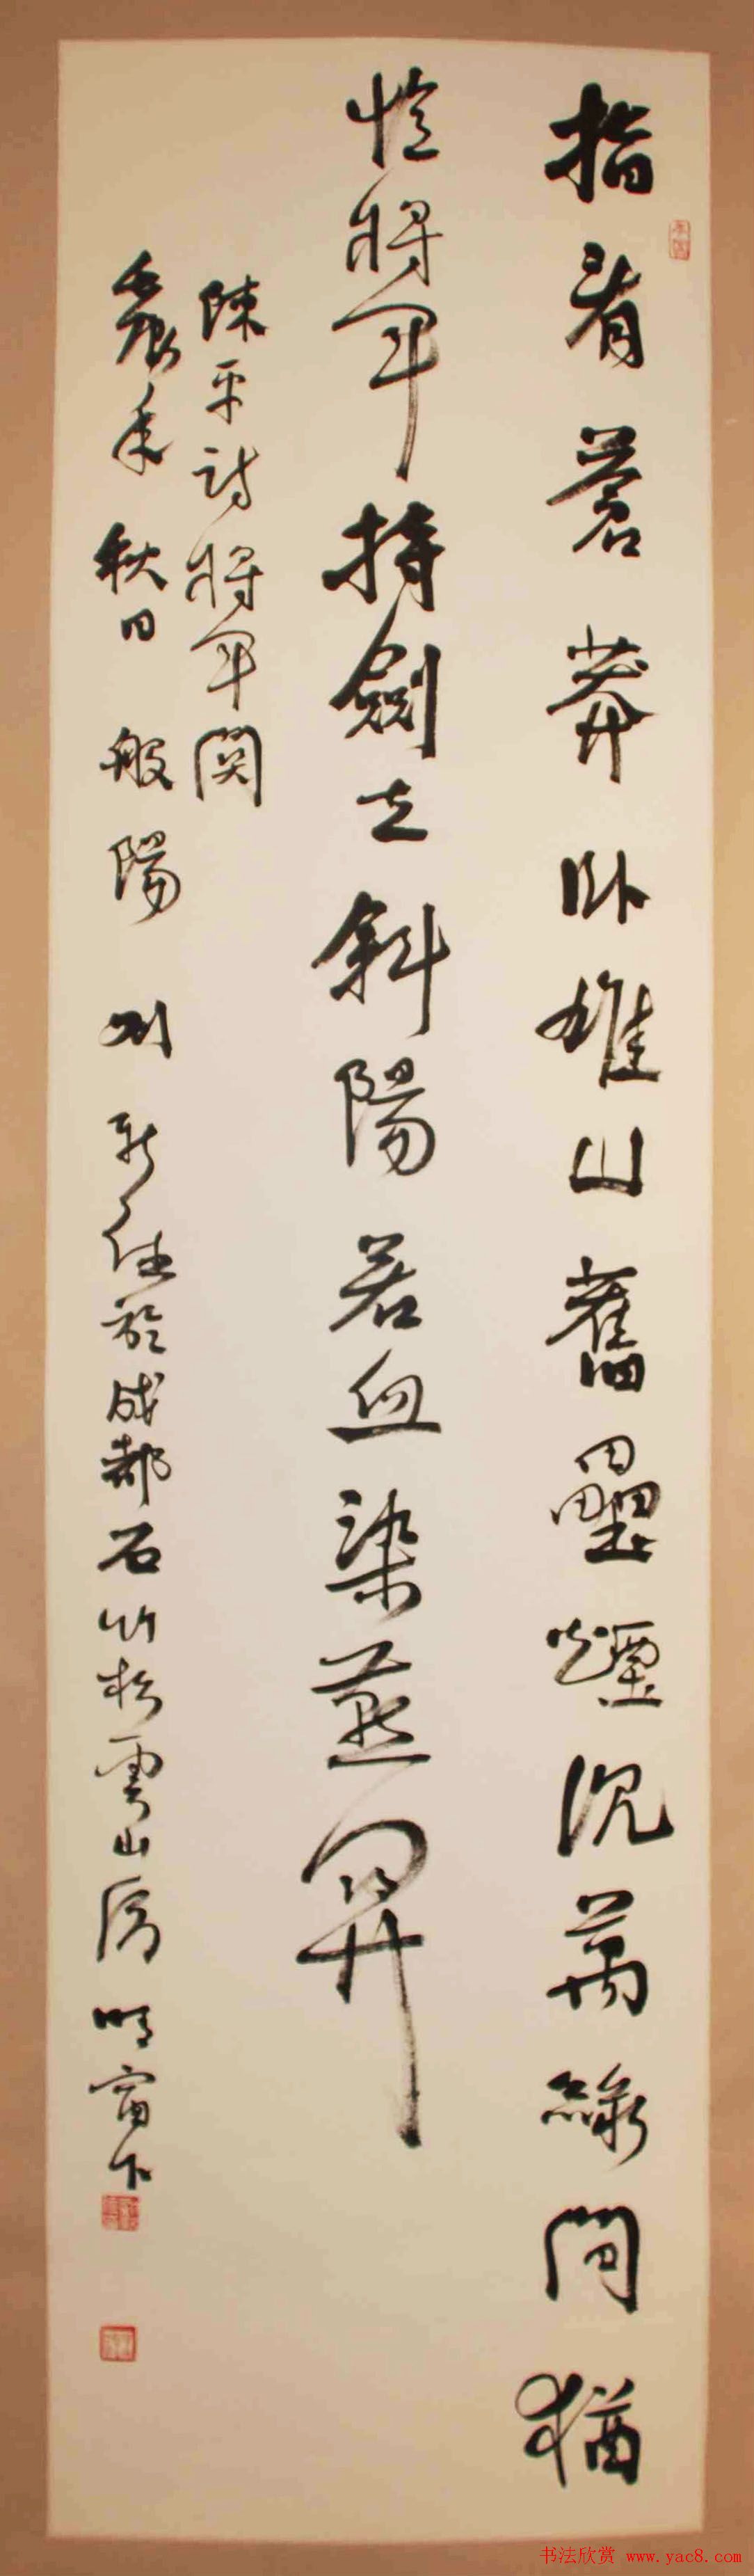 指看蒼莽臥雄山舊壘煙沉萬綠間猶
憶將軍持劍立斜陽若血染燕關
陳平詩將軍關
年秋日般陽刘新德於成都石竹松雲山房明窗下
书法欣赏 www.yac8.com